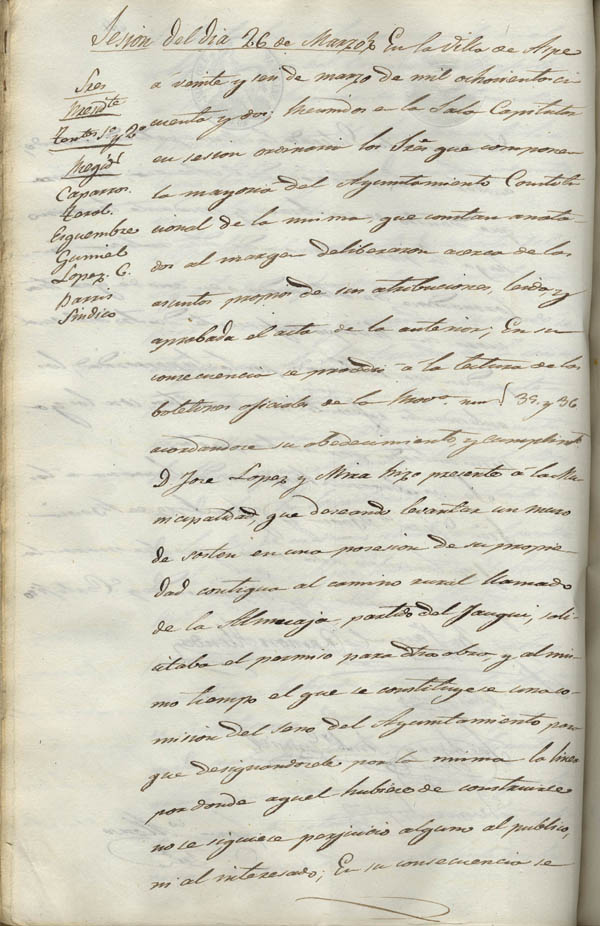 Sesion del dia 26 de Marzo En la Villa de Aspe
Sres
Presidte
Tentes 1º y 2º
Regid.
Caparros.
Terol.
Erquembre
Gumiel
Lopez. C.
Barris
Sindico
á veinte y seis de marzo de mil ochocientos cin
cuenta y dos; reunidos en la Sala Capitular
en sesion ordinaria los Sres que componen
la mayoria del Ayuntamiento Constitu
cional de la misma, que constan anota
dos al margen deliberaron acerca de los
asuntos propios de sus atribuciones, leida, y
aprobada el acta de la anterior; En su
consecuencia se procedió á la lectura de los
boletines oficiales de la Prova. num 35 y 36
acordandose su obedecimiento, y cumplimto
D. Jose Lopez y Mira hizo presente á la Mu
nicipalidad, que deseando levantar un muro
de sosten en una posesion de su propie
dad contigua al camino rural llamado
de la Almecaja, partido del Jauqui, soli
citaba el permiso para dicha obra, y al mis
mo tiempo el que se constituyese una co
mision del seno del Ayuntamiento para
que designandosele por la misma la linea
por donde aquel hubiere de construirse
no se siguiese perjuicio alguno al publico,
ni al interesado; En su consecuencia se